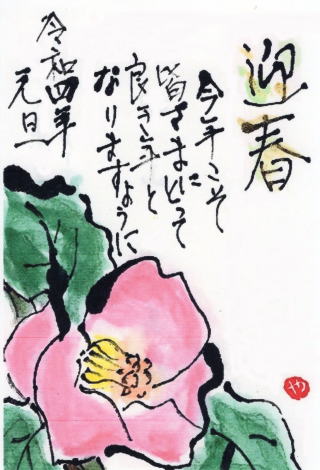 迎春
今年こそ
皆さまにとって
良き年と
なりますように
令和四年
元旦
や